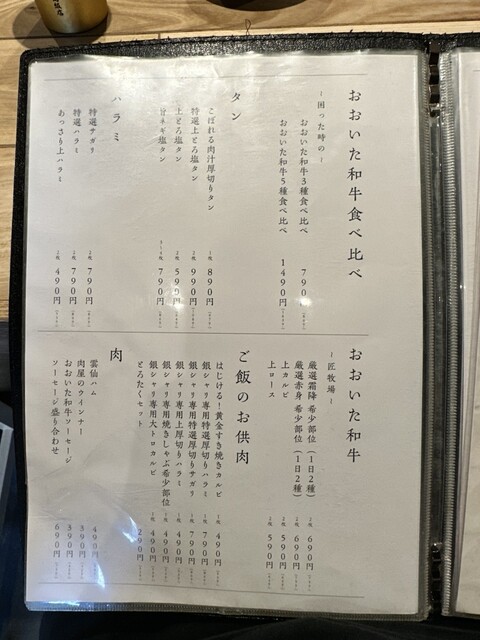 おおいた和牛食べ比べ
～困った時の～
おおいた和牛3種食べ比べ 790円
おおいた和牛5種食べ比べ 1490円
タン
こぼれる肉汁厚切りタン 1枚 890円
特選上とろ塩タン 2枚 990円
上とろ塩タン 2枚 590円
旨ネギ塩タン 790円
ハラミ
特選サガリ 2枚 790円
特選ハラミ 2枚 790円
あっさり上ハラミ 2枚 490円
おおいた和牛
～匠牧場～
厳選霜降 希少部位（1日2種） 2枚 690円
厳選赤身 希少部位（1日2種） 2枚 690円
上カルビ 2枚 590円
上ロース 2枚 590円
ご飯のお供肉
はじける！黄金すき焼きカルビ 1枚 490円
銀シャリ専用特選厚切りハラミ 1枚 790円
銀シャリ専用特選厚切りサガリ 1枚 790円
銀シャリ専用上厚切りハラミ 1枚 490円
銀シャリ専用焼きしゃぶ希少部位 1枚 490円
銀シャリ専用大トロカルビ 1枚 490円
とろたくセット 290円
肉
雲仙ハム 490円
肉屋のウインナー 390円
おおいた和牛ソーセージ 390円
ソーセージ盛り合わせ 690円